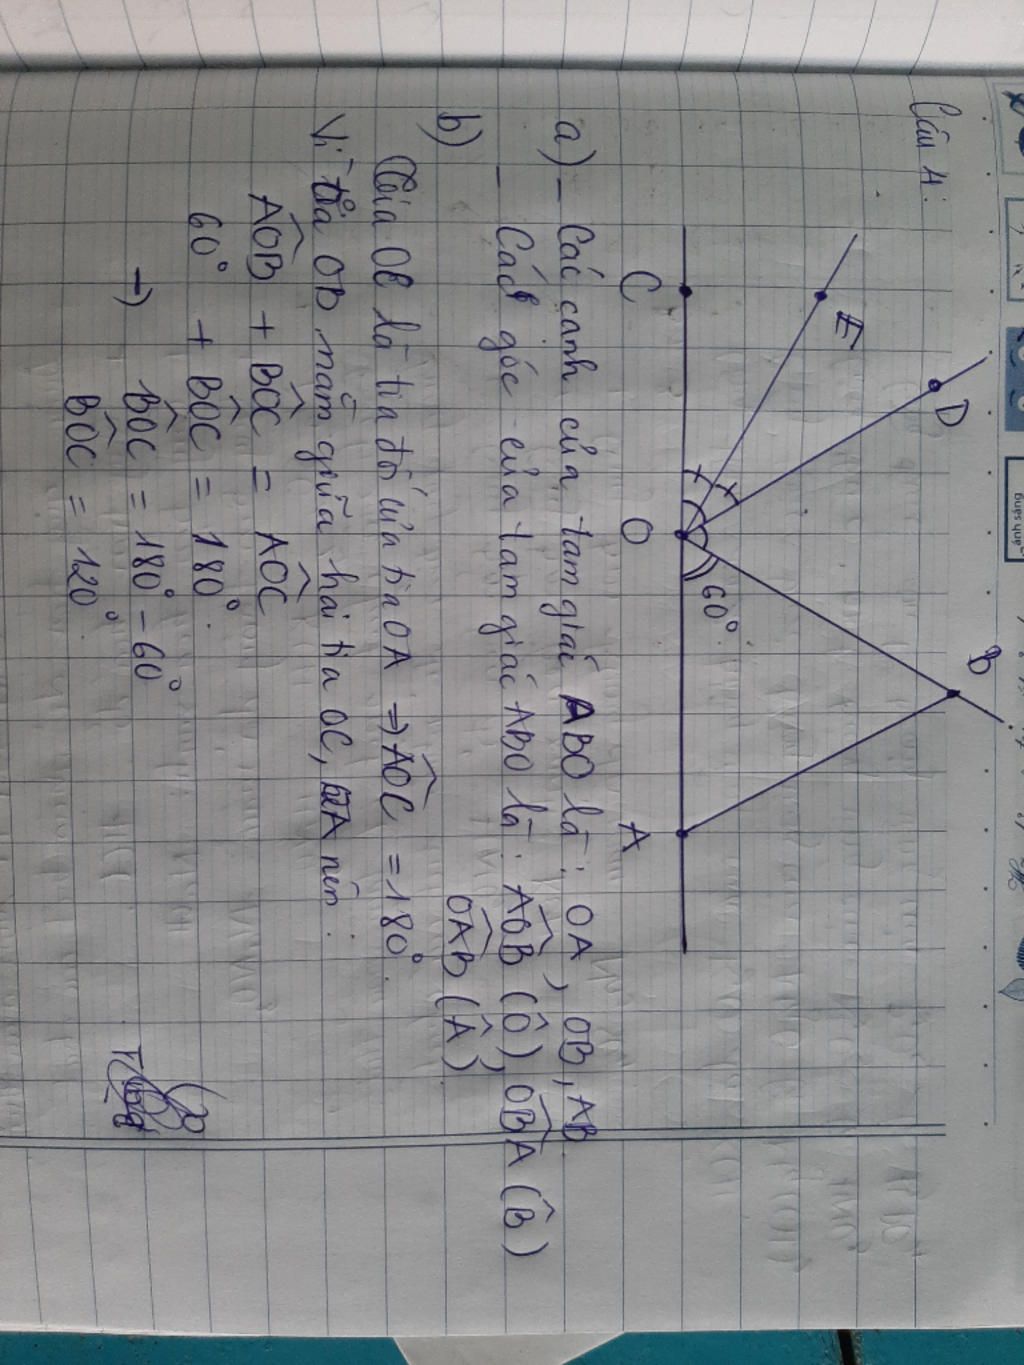 Câu 4:
E
D
B
60°
C
O
A
a) - Các cạnh của tam giác ABO là: OA, OB, AB
- Các góc của tam giác ABO là: AÔB (Ô), OB̂A (B̂)
OÂB (Â)
b)
là tia đối của tia OA => AÔC = 180°.
Vì tia OB nằm giữa hai tia OC, OA nên:
AÔB + BÔC = AÔC
60° + BÔC = 180°.
→ BÔC = 180° - 60°
BÔC = 120°
ánh sáng